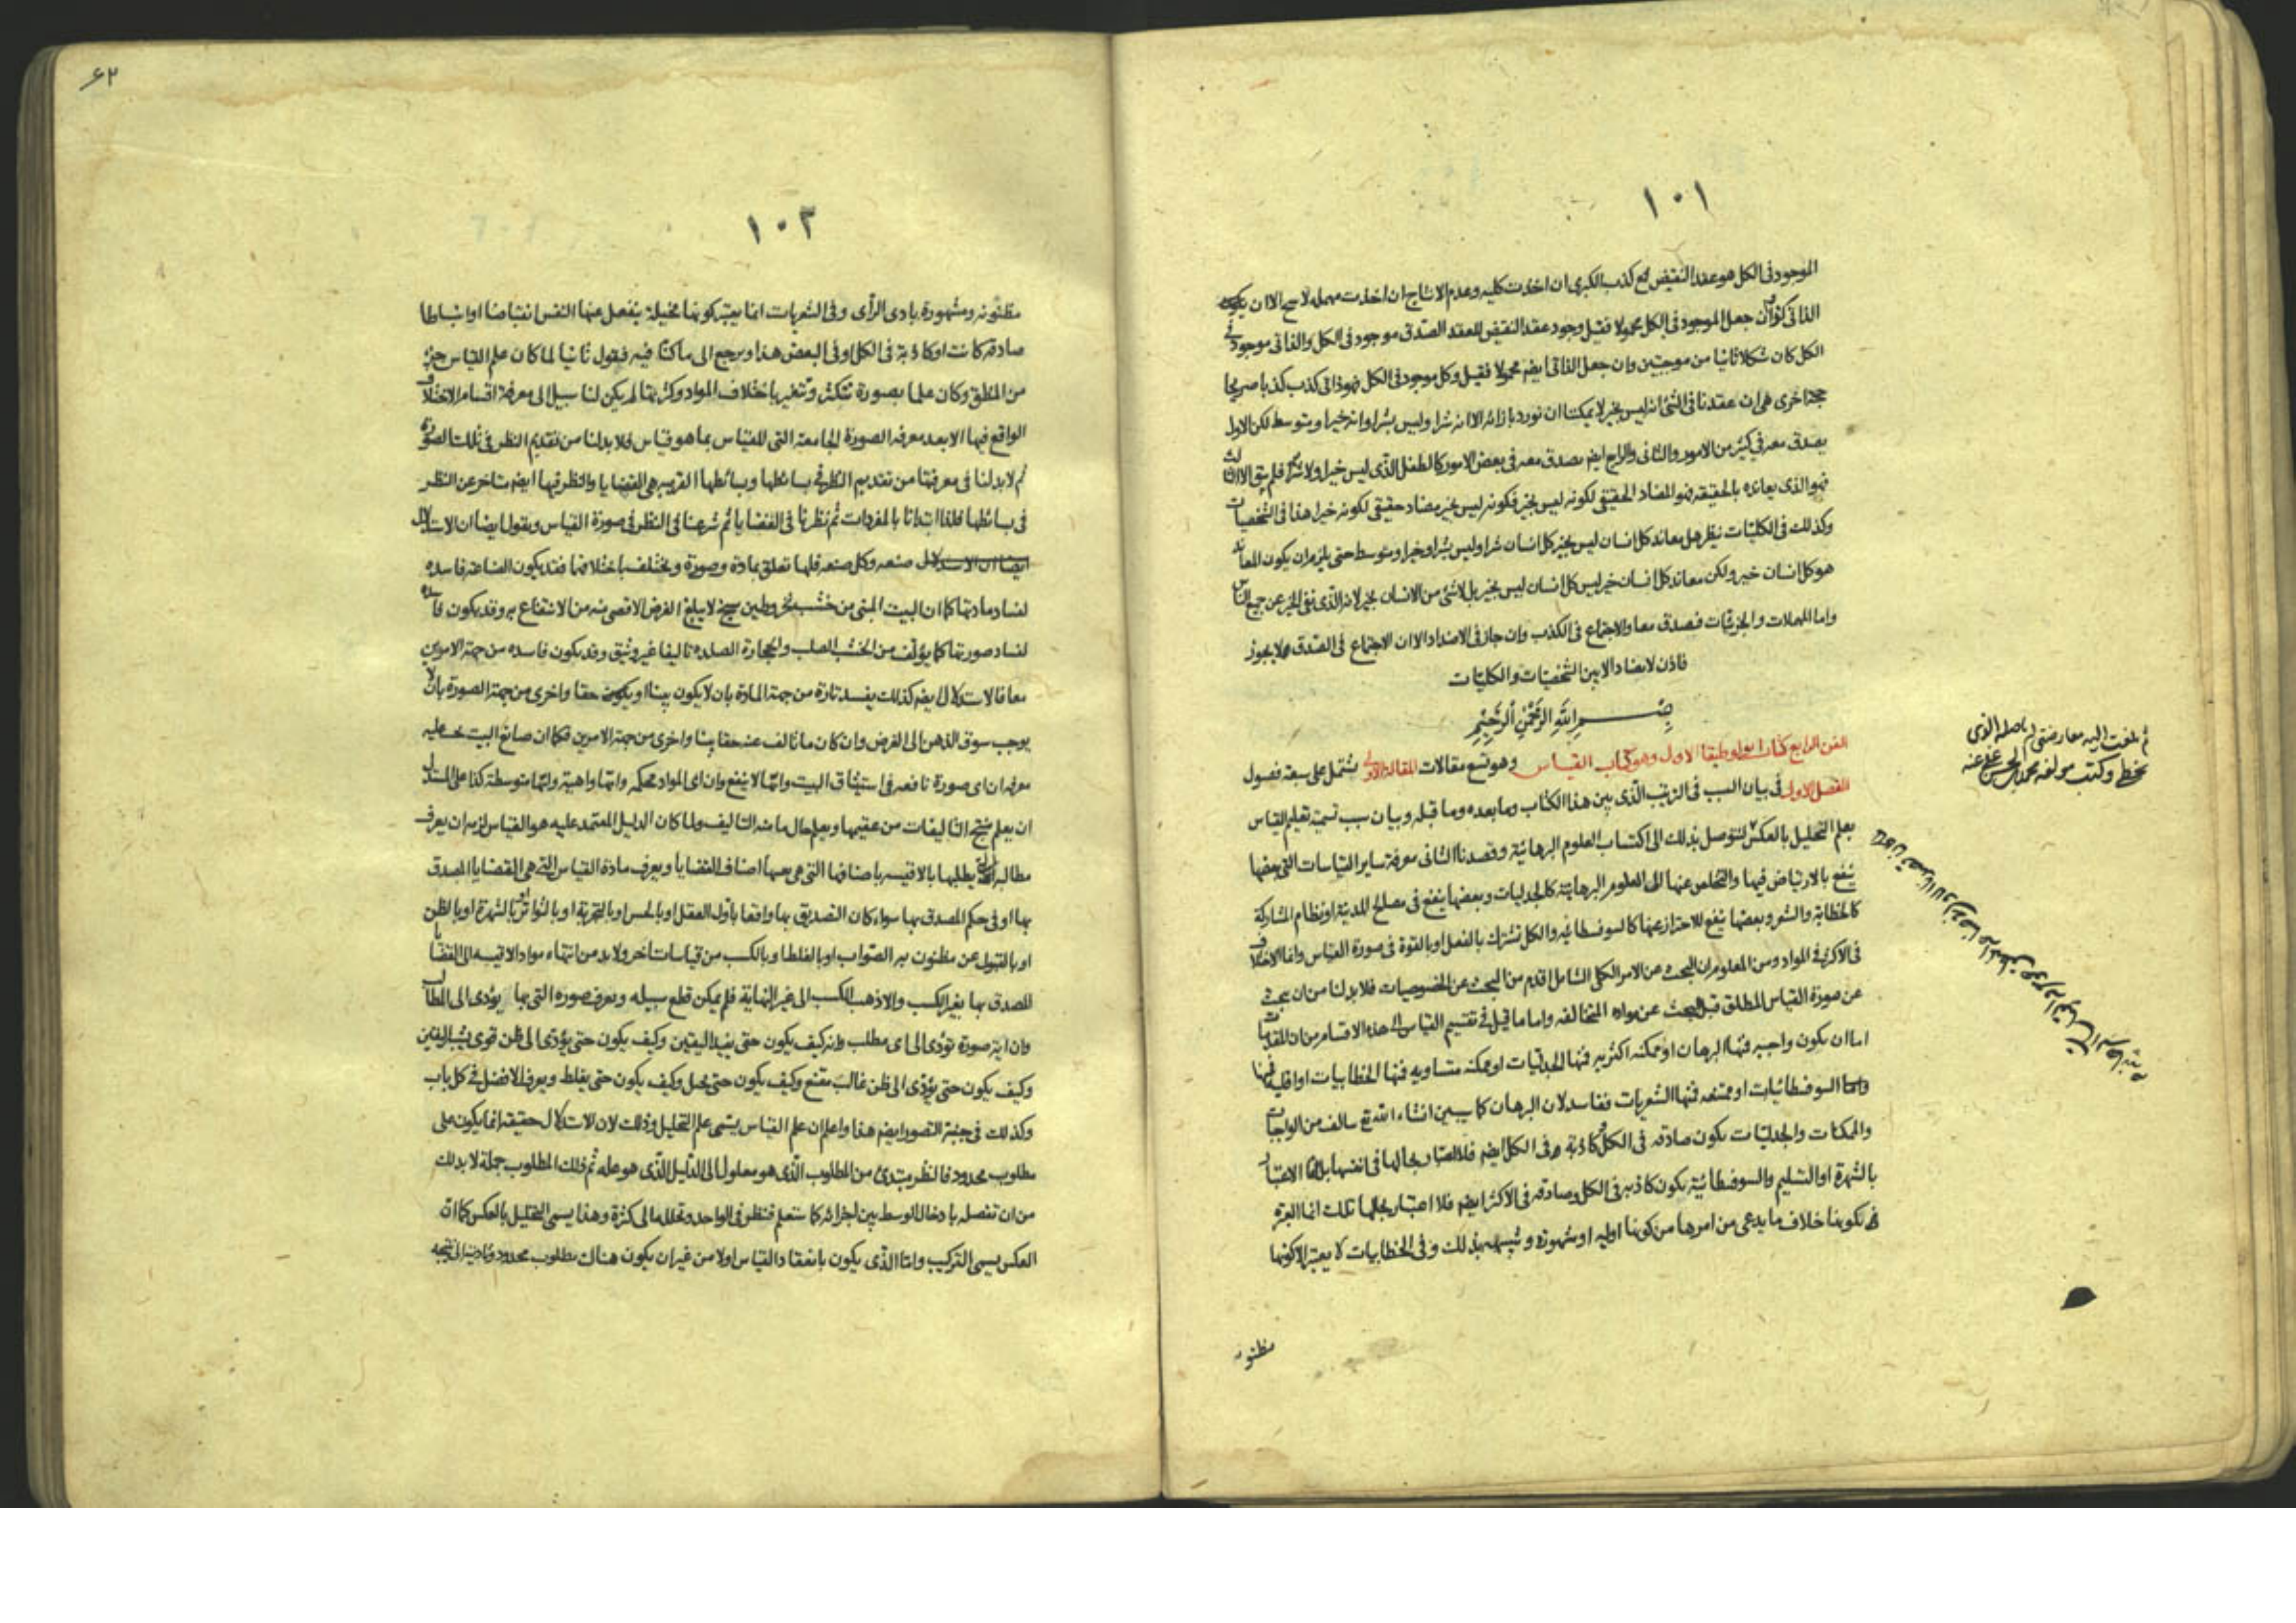 ١٠١
الموجود فى الكل هو عقد النقيض مع كذب الكبرى ان اخذت كليه وعدم الانتاج ان اخذت مهمله لا سيما الا ان يكون
الذاتى جعل الموجود فى الكل محمولا فقيل وجود عقد النقيض للعقد الصدق موجود فى الكل والذاتى موجود فى
الكل كان شكلا ثانيا من موجبتين وان جعل الذاتى ايضا محمولا فقيل وكل موجود فى الكل فهو ذاتى كذب كذبا صريحا
حجة اخرى هى ان عقدنا فى الشئ انه ليس بخير لا يمكننا ان نورد بازائه الا انه شر او ليس بشر او انه خير او متوسط لكن الاول
يصدق معه فى كثير من الامور والثانى والرابع ايضا يصدق معه فى بعض الامور كالطفل الذى ليس خيرا ولا شرا فلم يبق الا الثالث
فهو الذى يعانده بالحقيقه فهو المضاد الحقيقى لكونه ليس بخير فكونه ليس بخير مضاد حقيقى لكونه خيرا هذا فى الشخصيات
وكذلك فى الكليات نيظر هل معاند كل انسان ليس بخير كل انسان شر او ليس بشر او خير او متوسط حتى يلزم ان يكون المعاند
هو كل انسان خير ولكن معاند كل انسان خير ليس كل انسان ليس بخير بل لا شئ من الانسان بخير لانه الذى نفى الخير عن جميع الناس
واما المهملات والجزئيات فصدق معا والاجتماع فى الكذب وان جاز فى الاضداد الا ان الاجتماع فى الصدق مما لا يجوز
فاذن لا تضاد الا بين الشخصيات والكليات
بسم الله الرحمن الرحيم
الفن الرابع كتاب انولوطيقا الاول وهو كتاب القياس وهو تسع مقالات المقالة الاولى يشتمل على سبعة فصول
الفصل الاول فى بيان السبب فى الترتيب الذى بين هذا الكتاب وما بعده وما قبله وبيان سبب تسمية تعليم القياس
بعلم التحليل بالعكس لنتوصل بذلك الى اكتساب العلوم البرهانية وقصدنا الثانى معرفة ساير القياسات التى بعضها
ينفع بالارتياض فيها والتخلص عنها الى العلوم البرهانية كالجدليات وبعضها ينفع فى مصالح المدينة او نظام المشاركة
كالخطابة والشعر وبعضها ينفع للاحتراز عنها كالسوفسطائيه والكل تشترك بالفعل او بالقوة فى صورة القياس وانما الاختلاف
فى الاكثر فى المواد ومن المعلوم ان البحث عن الامر الكلى الشامل اقدم من البحث عن الخصوصيات فلا بد لنا من ان نبحث
عن صورة القياس المطلق قبل البحث عن مواده المتخالفه واما ما قيل فى تقسيم القياس الى هذه الاقسام من ان المقدمات
اما ان يكون واجبه فمنها البرهان او ممكنه اكثريه فمنها الجدليات او ممكنه متساويه فمنها الخطابيات او اقليه فمنها
السوفسطائيات او ممتنعه فمنها الشعريات ففاسد لان البرهان كما سيبين انشاء الله تع سالف من الواجبات
والممكنات والجدليات يكون صادقه فى الكل وكاذبة فى الكل ايضا فلا اعتبار بحالها فى انفسها بل انما الاعتبار
بالشهرة او التسليم والسوفسطائية يكون كاذبه فى الكل وصادقه فى الاكثر ايضا فلا اعتبار بحالها تلك انما العبرة
بكونها خلاف ما يدعى من امرها من كونها اوليه او مشهورة وشبيهه بذلك وفى الخطابيات لا يعتبر الا كونها
مظنونه
ثم بلغت اليه معارضتى له باصله الذى
بخطى وكتب مولفه محمد بن الحسن عفى عنه
٦٢
١٠٢
مظنونه ومشهورة بادى الراى وفى الشعريات انما يعتبر كونها مخيلة ينفعل عنها النفس انقباضا او انبساطا
صادقه كانت او كاذبة فى الكل او فى البعض هذا ويرجع الى ما كنا فيه فيقول ثانيا لما كان علم القياس جزء
من المنطق وكان علما بصورة تتكثر وتتغير باختلاف المواد وكثرتها لم يكن لنا سبيل الى معرفة اقسام الاختلاف
الواقع فيها الا بعد معرفه الصورة الجامعه التى للقياس بما هو قياس فلا بد لنا من تقديم النظر فى تلك الصورة
ثم لا بد لنا فى معرفتها من تقديم النظر فى بسائطها وبسائطها القريبه هى القضايا والنظر فيها ايضا متاخر عن النظر
فى بسائطها فلذا ابتدانا بالمفردات ثم نظرنا فى القضايا ثم شرعنا فى النظر فى صورة القياس ويقول ايضا ان الاستدلال
ايضا ان الاستدلال صنعه وكل صنعه فلها تعلق بمادة وصورة ويختلف باختلافها فقد يكون الصناعه فاسده
لفساد مادتها كما ان البيت المبنى من خشب نخر وطين سبخ لا يبلغ الغرض الاقصى منه من الانتفاع به وقد يكون فاسده
لفساد صورتها كما يؤلف من الخشب الصلب والحجارة الصلده تاليفا غير وثيق وقد يكون فاسده من جهة الامرين
معا فالاستدلال ايضا كذلك يفسد تارة من جهة المادة بان لا يكون بينا او يكون حقا واخرى من جهة الصورة بان لا
يوجب سوق الذهن الى الغرض وان كان ما تالف عنه حقا بينا واخرى من جهة الامرين فكما ان صانع البيت عليه
معرفه ان اى صورة نافعه فى استيثاق البيت وايها لا ينفع وان اى المواد محكمه وايها واهية وايها متوسطة كذا على المستدل
ان يعلم منتج التاليفات من عقيمها ويعلم حال ما منه التاليف ولما كان الدليل المعتمد عليه هو القياس لزمه ان يعرف
مطالبه التى يطلبها بالاقيسه باصنافها التى هى بعينها اصناف القضايا ويعرف مادة القياس التى هى القضايا المصدق
بها او فى حكم المصدق بها سواء كان التصديق بها واقعا باول العقل او بالحس او بالتجربة او بالتواتر او بالشهرة او بالظن
او بالقبول عن مظنون به الصواب او بالغلط او بالكسب من قياسات اخر ولا بد من انتهاء مواد الاقيسه الى القضايا
المصدق بها بغير الكسب والا ذهب الكسب الى غير النهاية فلم يمكن قطع سبيله ويعرف صوره التى بها يؤدى الى المطالب
وان اية صورة تؤدى الى اى مطلب وانه كيف يكون حتى يفيد اليقين وكيف يكون حتى يؤدى الى ظن قوى يشبه اليقين
وكيف يكون حتى يؤدى الى ظن غالب مقنع وكيف يكون حتى يخيل وكيف يكون حتى يغلط ويعرف الافضل فى كل باب
وكذلك فى جنبة التصور ايضا هذا واعلم ان علم القياس يسمى علم التحليل وذلك لان الاستدلال حقيقه انما يكون على
مطلوب محدود فالنظر يبتدئ من المطلوب الذى هو معلول الى الدليل الذى هو علة ثم ذلك المطلوب جملة لا بد لك
من ان تفصله بادخال الوسط بين اجزائه كما ستعلم فتنظر فى الواحد وتحلله الى كثرة وهذا يسمى التحليل بالعكس كما ان
العكس يسمى التركيب واما الذى يكون بانعقاد القياس اولا من غير ان يكون هناك مطلوب محدود